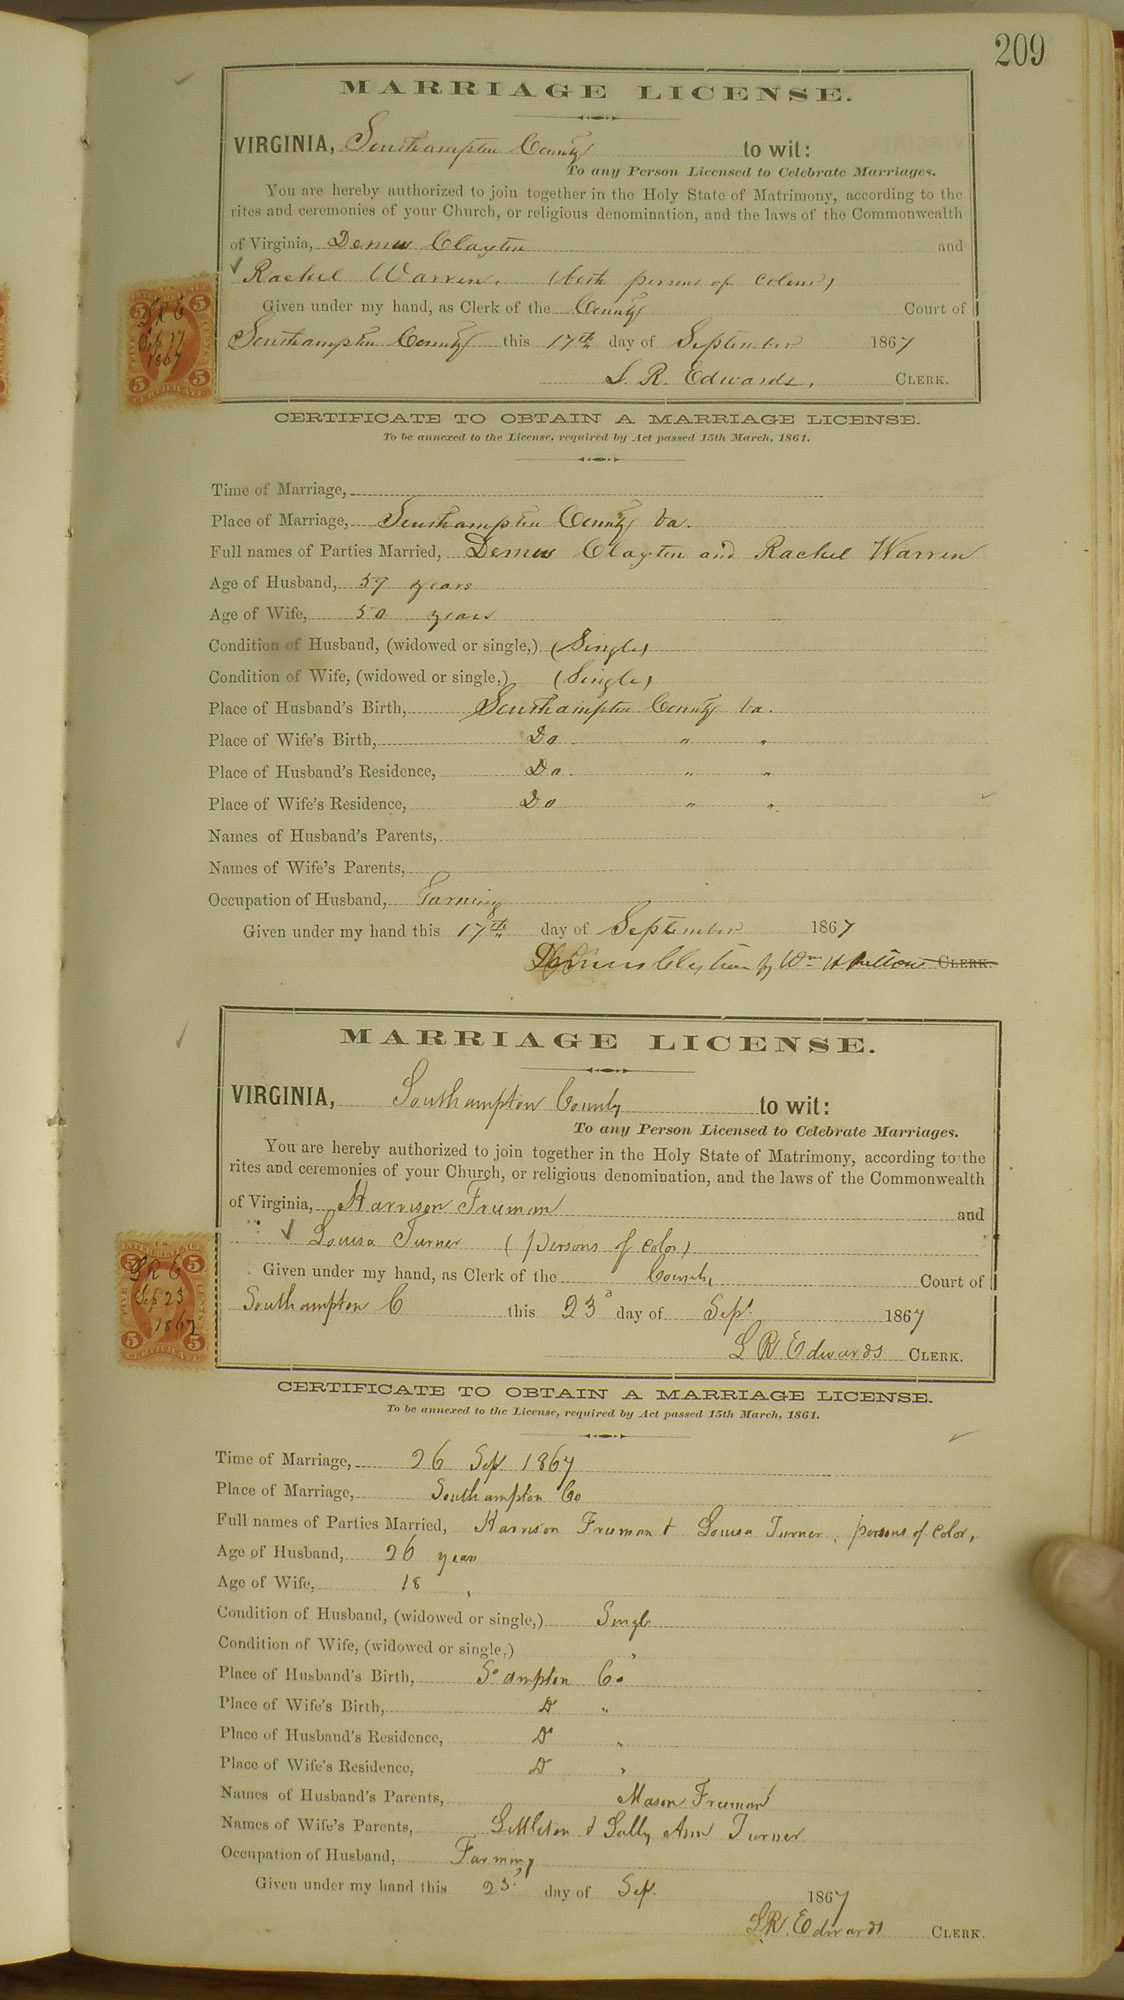 209
MARRIAGE LICENSE.
VIRGINIA, Southampton County to wit:
To any Person Licensed to Celebrate Marriages.
You are hereby authorized to join together in the Holy State of Matrimony, according to the
rites and ceremonies of your Church, or religious denomination, and the laws of the Commonwealth
of Virginia, Demus Clayton and
Rachel Warren. (both persons of colour)
Given under my hand, as Clerk of the County Court of
Southampton County this 17th day of September 1867
L. R. Edwards, CLERK.
5 5
L R E
Sep 17
1867
5 5
CERTIFICATE
CERTIFICATE TO OBTAIN A MARRIAGE LICENSE.
To be annexed to the License, required by Act passed 15th March, 1861.
Time of Marriage,
Place of Marriage, Southampton County Va.
Full names of Parties Married, Demus Clayton and Rachel Warren
Age of Husband, 59 years
Age of Wife, 50 years
Condition of Husband, (widowed or single,) (Single)
Condition of Wife, (widowed or single,) (Single)
Place of Husband's Birth, Southampton County Va.
Place of Wife's Birth, Do " "
Place of Husband's Residence, Do. " "
Place of Wife's Residence, Do " "
Names of Husband's Parents,
Names of Wife's Parents,
Occupation of Husband, Farming
Given under my hand this 17th day of September 1867
Demus Clayton by Wm H CLERK.
MARRIAGE LICENSE.
VIRGINIA, Southampton County to wit:
To any Person Licensed to Celebrate Marriages.
You are hereby authorized to join together in the Holy State of Matrimony, according to the
rites and ceremonies of your Church, or religious denomination, and the laws of the Commonwealth
of Virginia, Harrison Freeman and
Louisa Turner (persons of color)
Given under my hand, as Clerk of the County Court of
Southampton C this 23d day of Sept. 1867
L R Edwards CLERK.
5 5
L R E
Sep 23
1867
5 5
CERTIFICATE
CERTIFICATE TO OBTAIN A MARRIAGE LICENSE.
To be annexed to the License, required by Act passed 15th March, 1861.
Time of Marriage, 26 Sep 1867
Place of Marriage, Southampton Co
Full names of Parties Married, Harrison Freeman & Louisa Turner, persons of color,
Age of Husband, 26 years
Age of Wife, 18 "
Condition of Husband, (widowed or single,) Single
Condition of Wife, (widowed or single,) "
Place of Husband's Birth, So ampton Co
Place of Wife's Birth, Do "
Place of Husband's Residence, Do "
Place of Wife's Residence, Do "
Names of Husband's Parents, Mason Freeman
Names of Wife's Parents, Littleton & Sally Ann Turner
Occupation of Husband, Farming
Given under my hand this 23d day of Sep. 1867
L.R. Edwards CLERK.